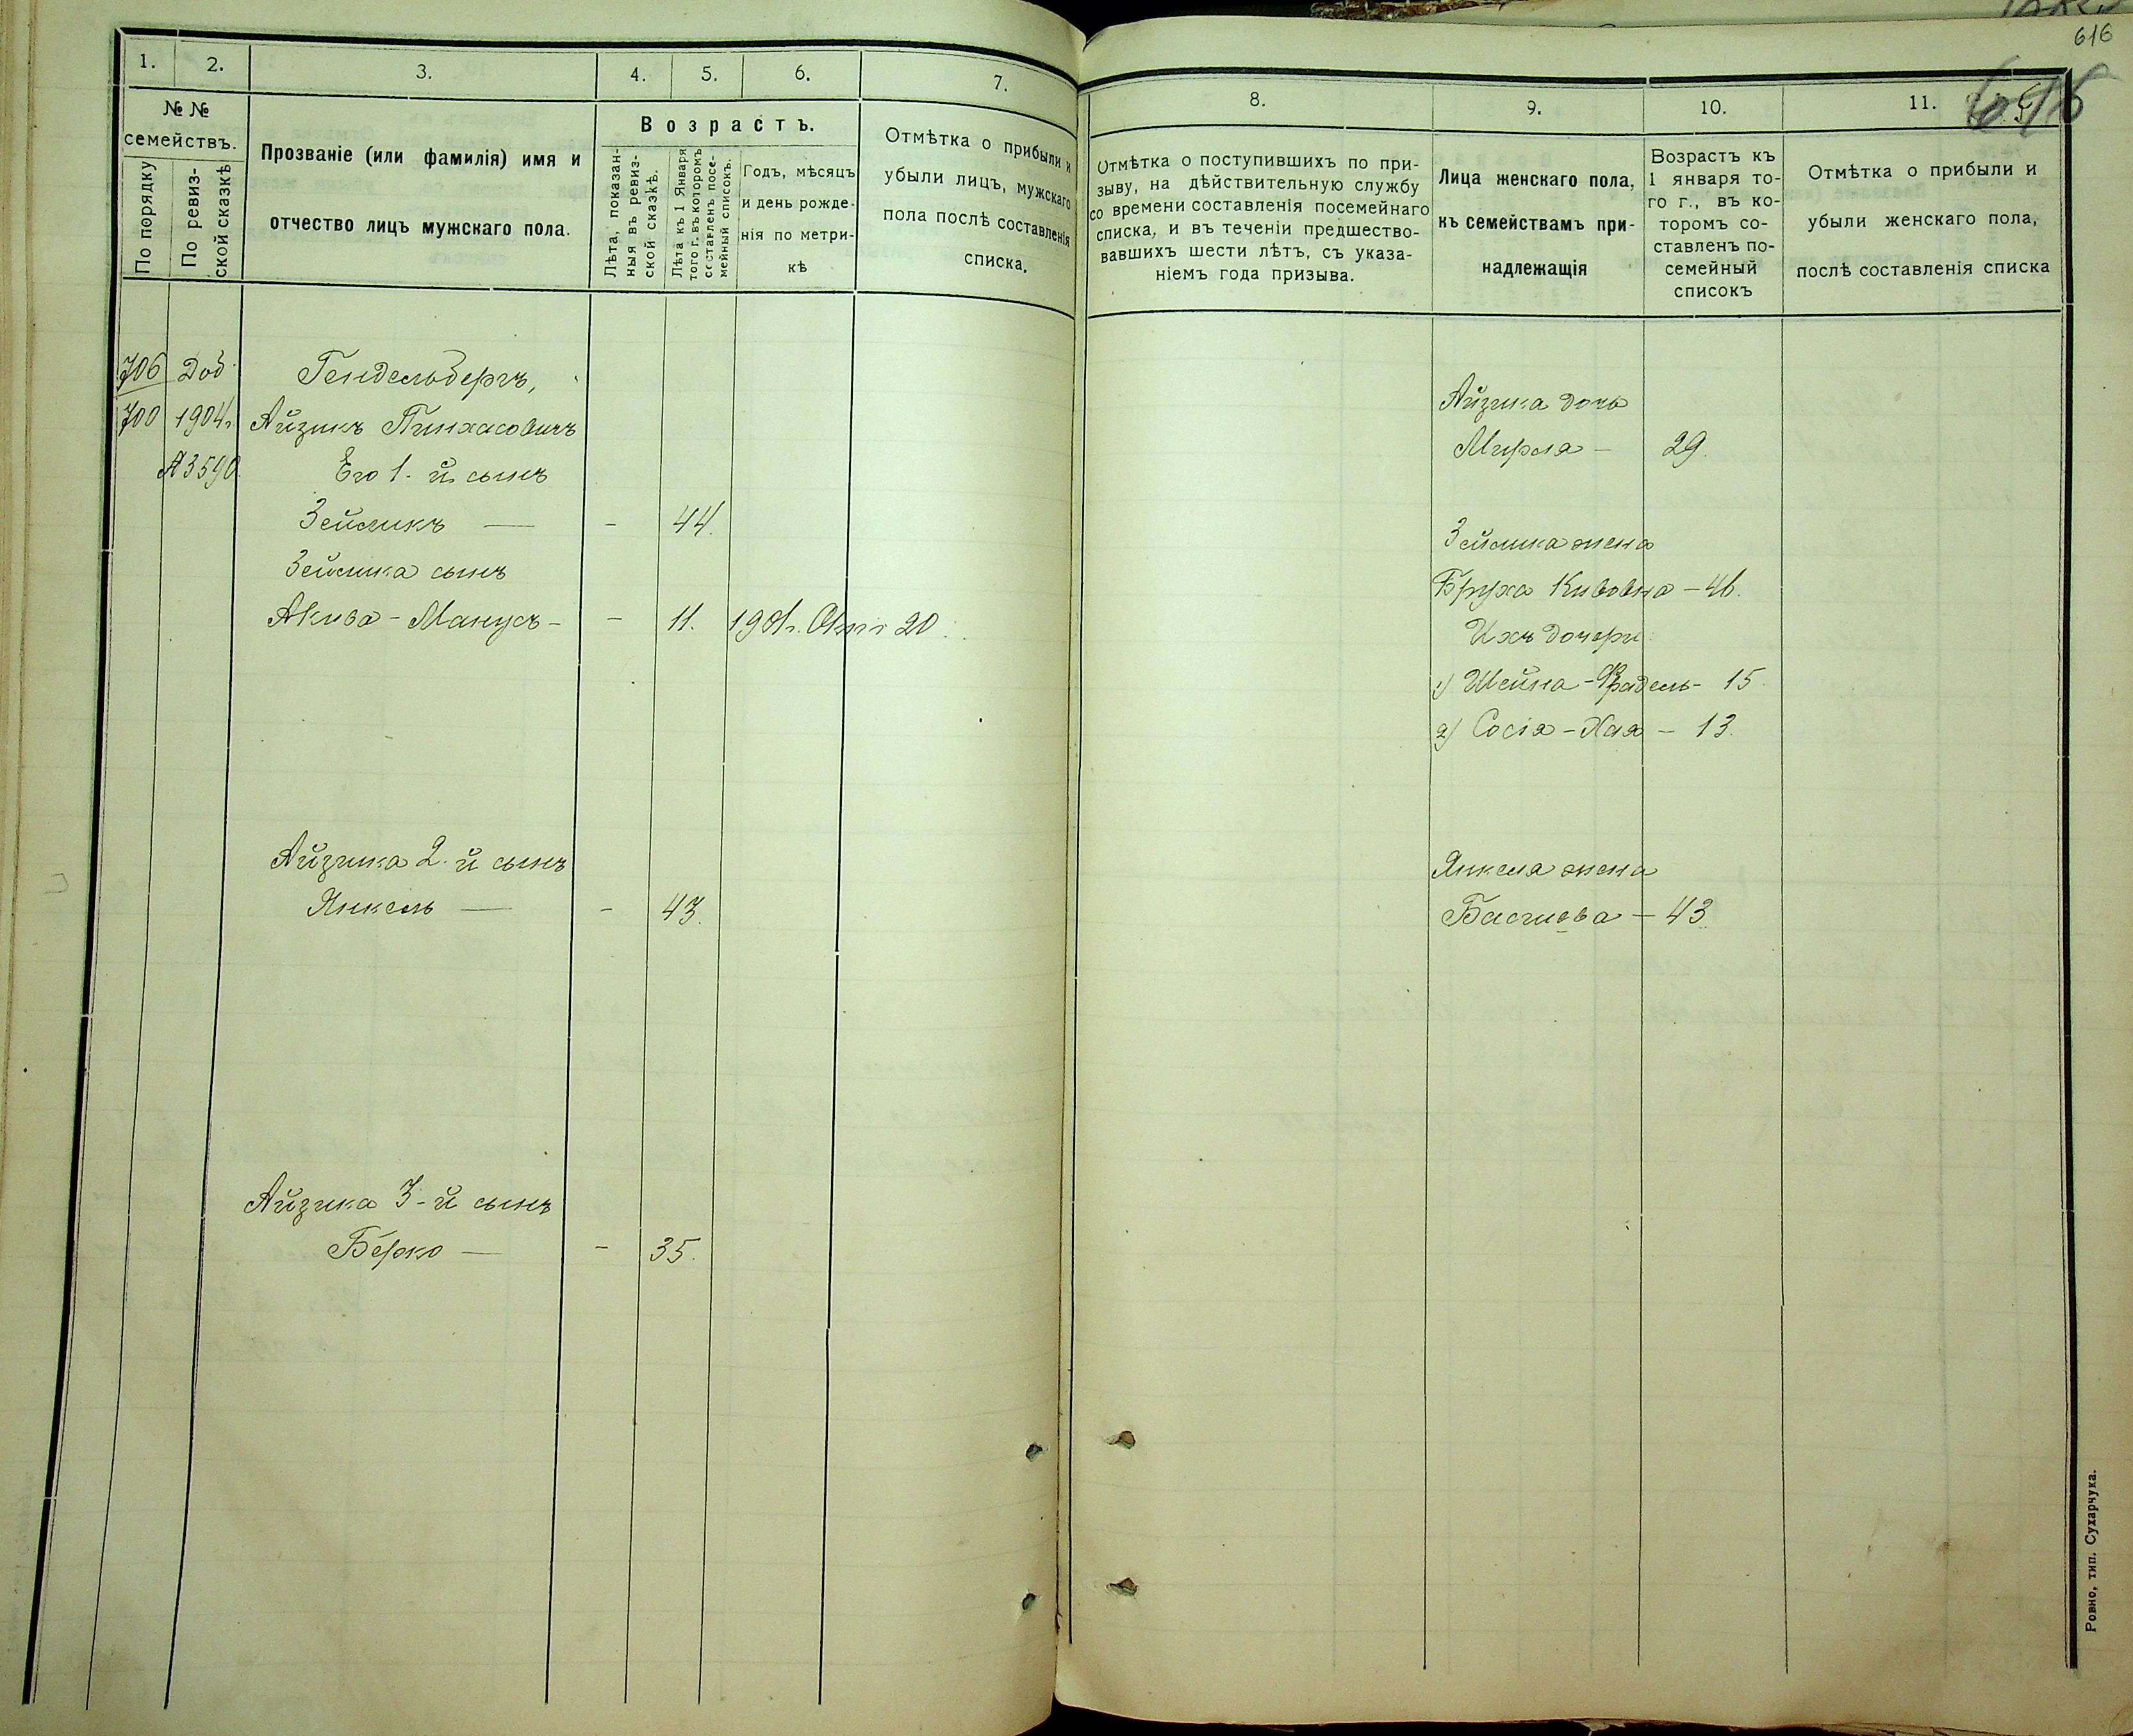 616
616
1.
2.
3.
4.
5.
6.
7.
№ №
семействъ.
По порядку
По ревиз-
ской сказкѣ
Прозваніе (или фамилія) имя и
отчество лицъ мужскаго пола.
Возрастъ.
Лѣта, показан-
ныя въ ревиз-
ской сказкѣ.
Лѣта къ 1 Января
того г. въ которомъ
составленъ посе-
мейный списокъ.
Годъ, мѣсяцъ
и день рожде-
нія по метри-
кѣ
Отмѣтка о прибыли и
убыли лицъ, мужскаго
пола послѣ составленія
списка.
706 Доб
Гендельбергъ,
700 1904г. Айзикъ Пинхасовичъ
№3590. Его 1-й сынъ
Зейликъ — - 44.
Зейлика сынъ
Акива-Манусъ - - 11. 1901г. 20
Айзика 2-й сынъ
Янкель — - 43.
Айзика 3-й сынъ
Берко — - 35.
8.
9.
10.
11.
Отмѣтка о поступившихъ по при-
зыву, на дѣйствительную службу
со времени составленія посемейнаго
списка, и въ теченіи предшество-
вавшихъ шести лѣтъ, съ указа-
ніемъ года призыва.
Лица женскаго пола,
къ семействамъ при-
надлежащія
Возрастъ къ
1 января то-
го г., въ ко-
торомъ со-
ставленъ по-
семейный
списокъ
Отмѣтка о прибыли и
убыли женскаго пола,
послѣ составленія списка
Айзика дочь
Мирля - 29.
Зейлика жена
Бруха Кивовна - 46.
Ихъ дочери:
1) Шейна-Фрадель - 15
2) Сосія-Хая - 13.
Янкеля жена
Басшева - 43.
Ровно, тип. Сухарчука.